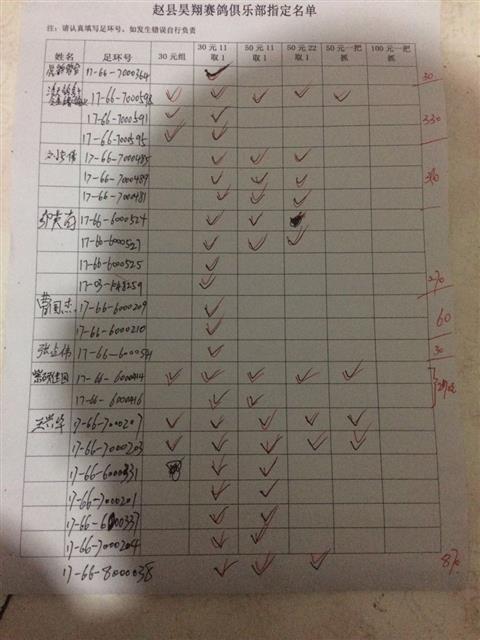 赵县昊翔赛鸽俱乐部指定名单
注：请认真填写足环号，如发生错误自行负责
姓名 足环号 30元组 30元11取1 50元11取1 50元22取1 50元一把抓 100元一把抓
17-66-7000364 30
17-66-7000598
17-66-7000591 330
17-66-7000595
17-66-7000485
17-66-7000489
17-66-7000481
17-66-6000524
17-66-6000527
17-66-6000525
270
曹国杰 17-66-6000209
17-66-6000210 60
张立伟 30
17-66-6000414
17-66-6000416
17-66-7000207
17-66-7000203
17-66-6000331
17-66-7000201
17-66-7000204
17-66-8000038